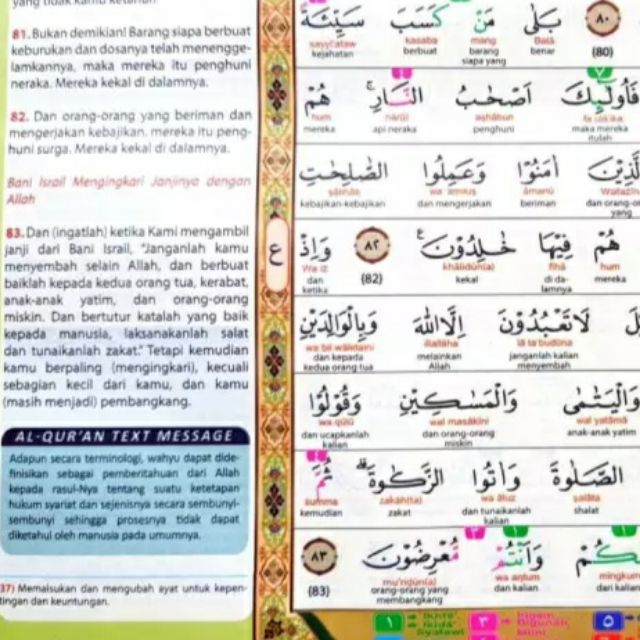 yang tidak kamu ketahui.
81. Bukan demikian! Barang siapa berbuat
keburukan dan dosanya telah menengge-
lamkannya, maka mereka itu penghuni
neraka. Mereka kekal di dalamnya.
82. Dan orang-orang yang beriman dan
mengerjakan kebajikan. mereka itu peng-
huni surga. Mereka kekal di dalamnya.
Bani Israil Mengingkari Janjinya dengan
Allah
83. Dan (ingatlah) ketika Kami mengambil
janji dari Bani Israil, "Janganlah kamu
menyembah selain Allah, dan berbuat
baiklah kepada kedua orang tua, kerabat,
anak-anak yatim, dan orang-orang
miskin. Dan bertutur katalah yang baik
kepada manusia, laksanakanlah salat
dan tunaikanlah zakat." Tetapi kemudian
kamu berpaling (mengingkari), kecuali
sebagian kecil dari kamu, dan kamu
(masih menjadi) pembangkang.
AL-QUR'AN TEXT MESSAGE
Adapun secara terminologi, wahyu dapat dide-
finisikan sebagai pemberitahuan dari Allah
kepada rasul-Nya tentang suatu ketetapan
hukum syariat dan sejenisnya secara sembunyi-
sembunyi sehingga prosesnya tidak dapat
diketahui oleh manusia pada umumnya.
37) Memalsukan dan mengubah ayat untuk kepen-
tingan dan keuntungan.
ع
٨٠ بَلٰى مَنْ كَسَبَ سَيِّئَةً
(80) Balā mang kasaba sayyi'ataw
benar barang berbuat kejahatan
siapa yang
فَاُولٰۤىِٕكَ اَصْحٰبُ النَّارِ ۚ هُمْ
fa ulā'ika aṣḥābun nār(i) hum
maka mereka penghuni api neraka mereka
itulah
الَّذِيْنَ اٰمَنُوْا وَعَمِلُوا الصّٰلِحٰتِ
āmanū wa 'amiluṣ ṣāliḥāti
dan orang-or beriman dan mengerjakan kebajikan-kebajikan
yang
هُمْ فِيْهَا خٰلِدُوْنَ ۚ ٨٢ وَاِذْ
hum fīhā khālidūn(a) (82) Wa iż
mereka di da- kekal dan
lamnya ketika
لَا تَعْبُدُوْنَ اِلَّا اللّٰهَ وَبِالْوَالِدَيْنِ
lā ta'budūna illallāha wa bil wālidaini
janganlah kalian melainkan dan kepada
menyembah Allah kedua orang tua
وَالْيَتٰمٰى وَالْمَسٰكِيْنِ وَقُوْلُوْا
wal yatāmā wal masākīni wa qūlū
anak-anak yatim dan orang-orang dan ucapkanlah
miskin kalian
الصَّلٰوةَ وَاٰتُوا الزَّكٰوةَ ۗ ثُمَّ
ṣalāta wa ātuz zakāh(ta) ṡumma
shalat dan tunaikanlah zakat kemudian
kalian
كُمْ وَاَنْتُمْ مُّعْرِضُوْنَ ٨٣
mingkum wa antum mu'riḍūn(a) (83)
dari kalian dan kalian orang-orang yang
membangkang
١ ٣ ٥